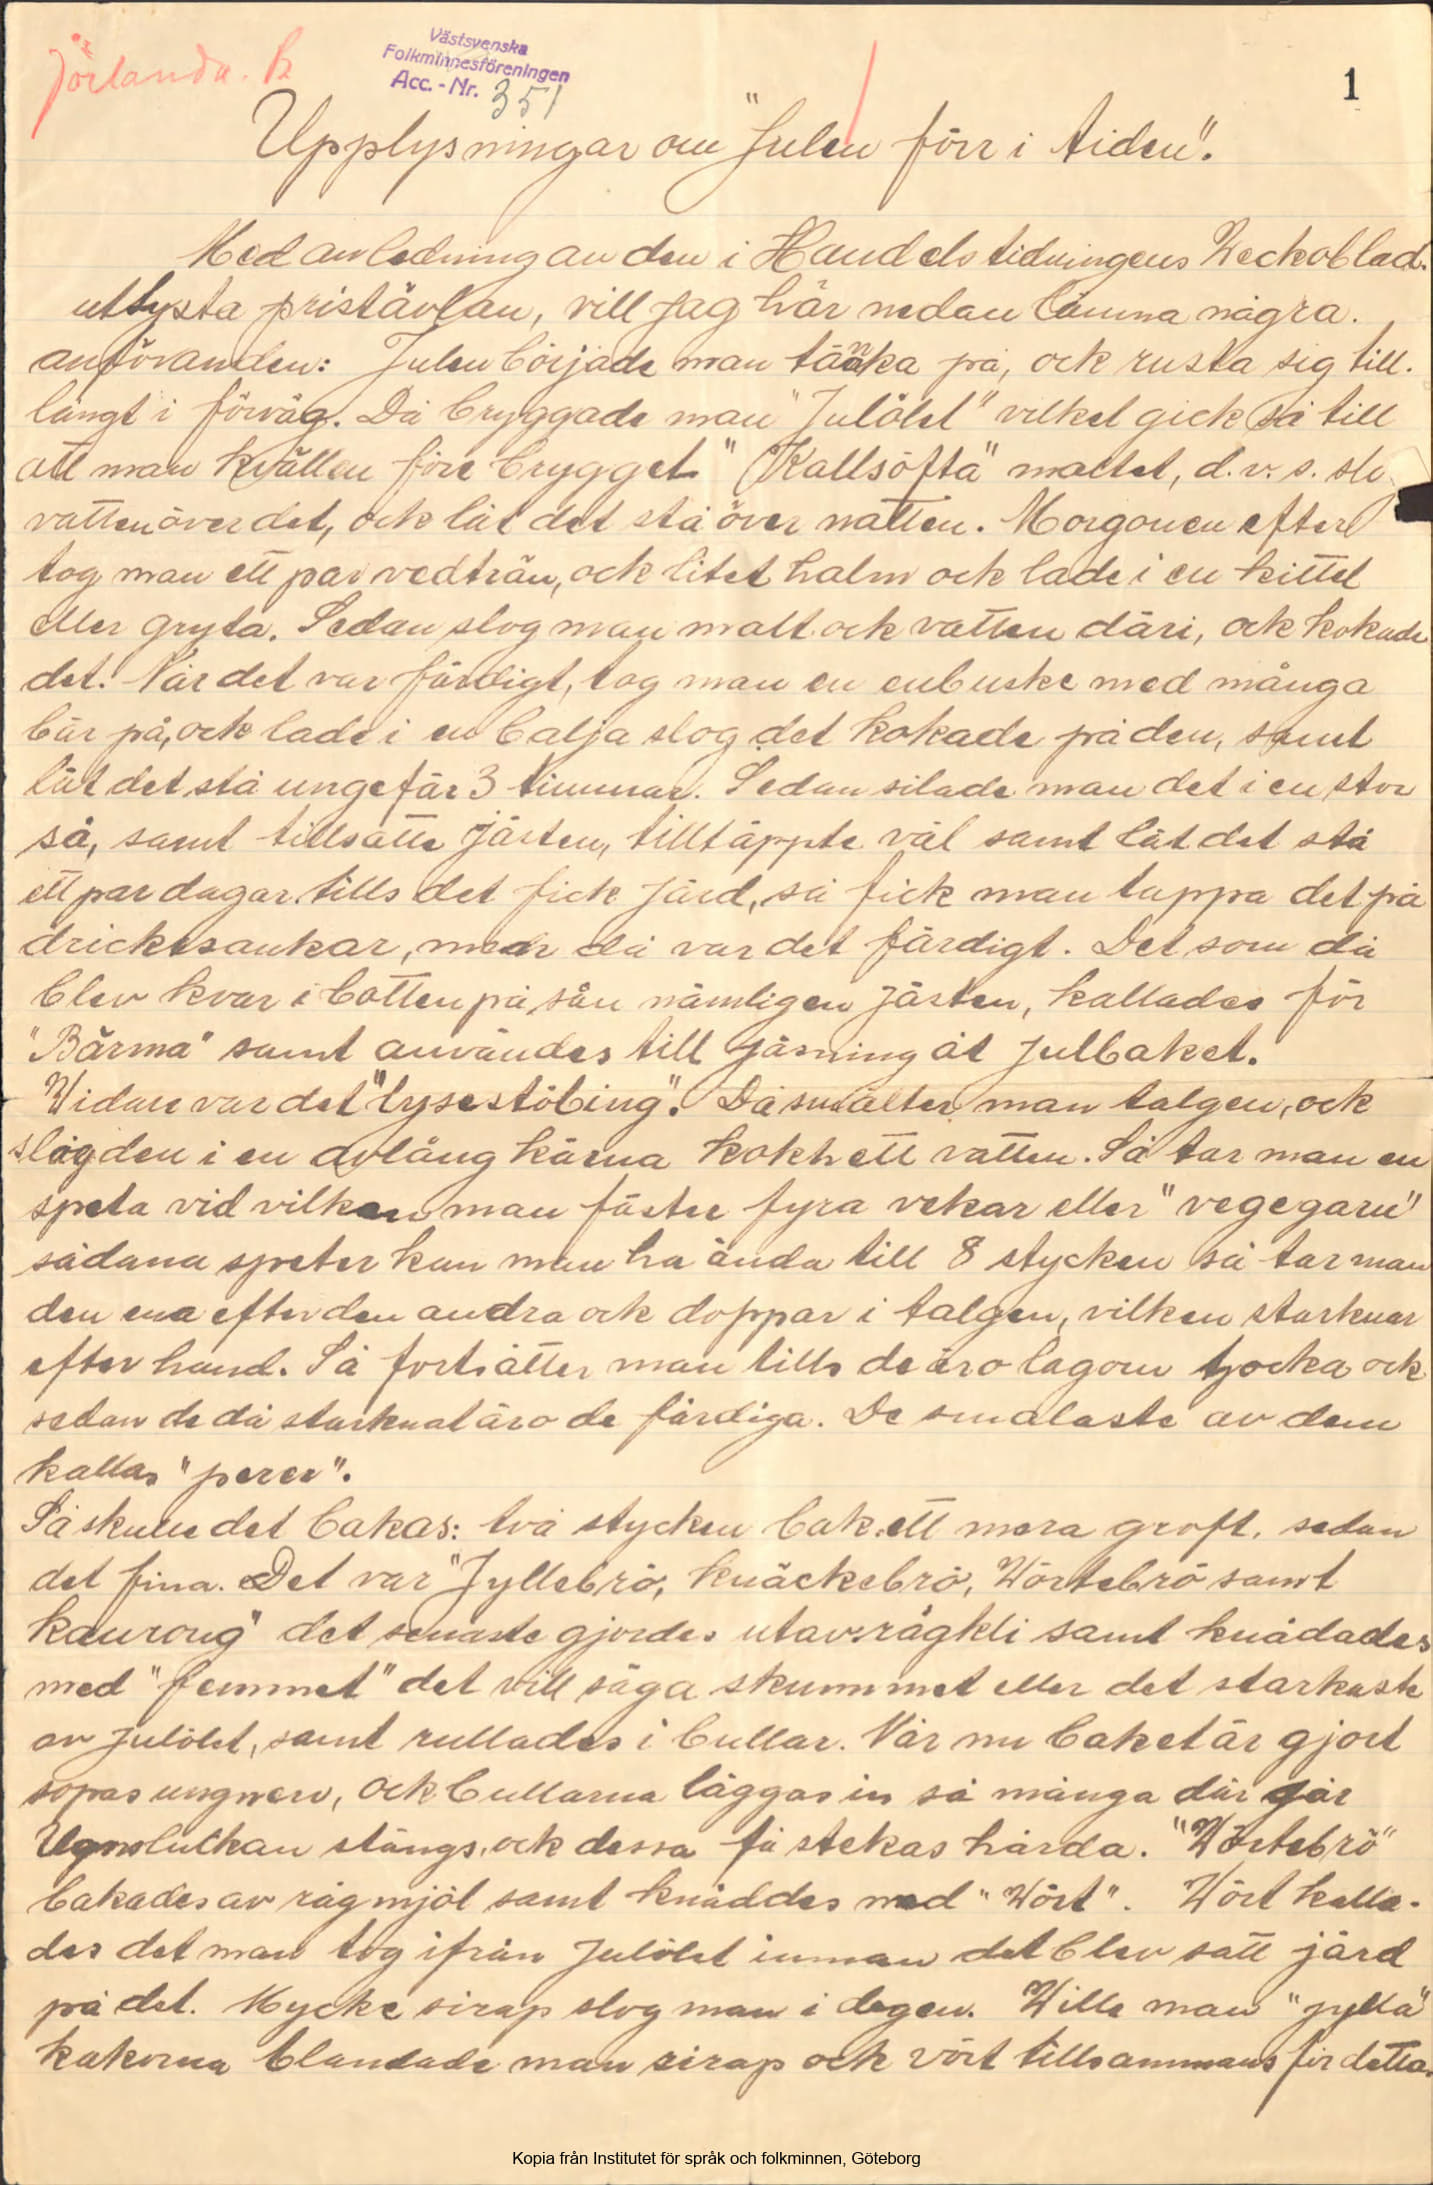 Jörlanda. B
Västsvenska
Folkminnesföreningen
Acc. - Nr. 351
1
Upplysningar om "Julen förr i tiden".
Med anledning av den i Handelstidningens Veckoblad.
utlysta pristävlan, vill jag här nedan lämna några.
anföranden: Julen började man tänka på, ock rusta sig till.
långt i förväg. Då bryggade man "Julölet" vilket gick så till
att man kvällen före brygget "Kallsöfta" maltet, d.v.s. slo
vatten över det, ock lät det stå över natten. Morgonen efter
tog man ett par vedträn, ock litet halm ock lade i en kittel
eller gryta. Sedan slog man malt ock vatten däri, ock kokade
det. När det var färdigt, tog man en enbuske med många
bär på, ock lade i en balja slog det kokade på den, samt
lät det stå ungefär 3 timmar. Sedan silade man det i en stor
så, samt tillsatte jästen, tilltäppte väl samt lät det stå
ett par dagar tills det fick jäsd, så fick man tappa det på
dricksankar, men då var det färdigt. Det som då
blev kvar i botten på sån nämligen jästen, kallades för
"Bärma" samt användes till jäsning åt julbaket.
Widare var det "lysestöbing". Då smälter man talgen, ock
slog den i en avlång kärna kokhett vatten. Så tar man en
speta vid vilken man fäster fyra vekar eller "vegegarn"
sådana speter kan man ha ända till 8 stycken så tar man
den ena efter den andra ock doppar i talgen, vilken starknar
efter hand. Så fortsätter man tills de äro lagom tjocka ock
sedan de då starknat äro de färdiga. De smalaste av dem
kallas "perer".
Så skulle det bakas: två stycken bak. ett mera groft, sedan
det fina. Det var "Jyllebrö, knäckebrö, Wörtebrö samt
kauroug" det senaste gjordes utav rågkli samt knådades
med "femmet" det vill säga skummet eller det starkaste
av julölet, samt rullades i bullar. När nu baket är gjort
sopas ungnen, ock bullarna läggas in så många där går
Ugnsluckan stängs, ock dessa få stekas hårda. "Wörtebrö"
bakades av rågmjöl samt knåddes med "Wört". Wört kalla-
des det man tog ifrån julölet innan det blev satt järd
på det. Mycke sirap slog man i degen. Wille man "jylla"
kakorna blandade man sirap ock vört tillsammans för detta.
Kopia från Institutet för språk och folkminnen, Göteborg